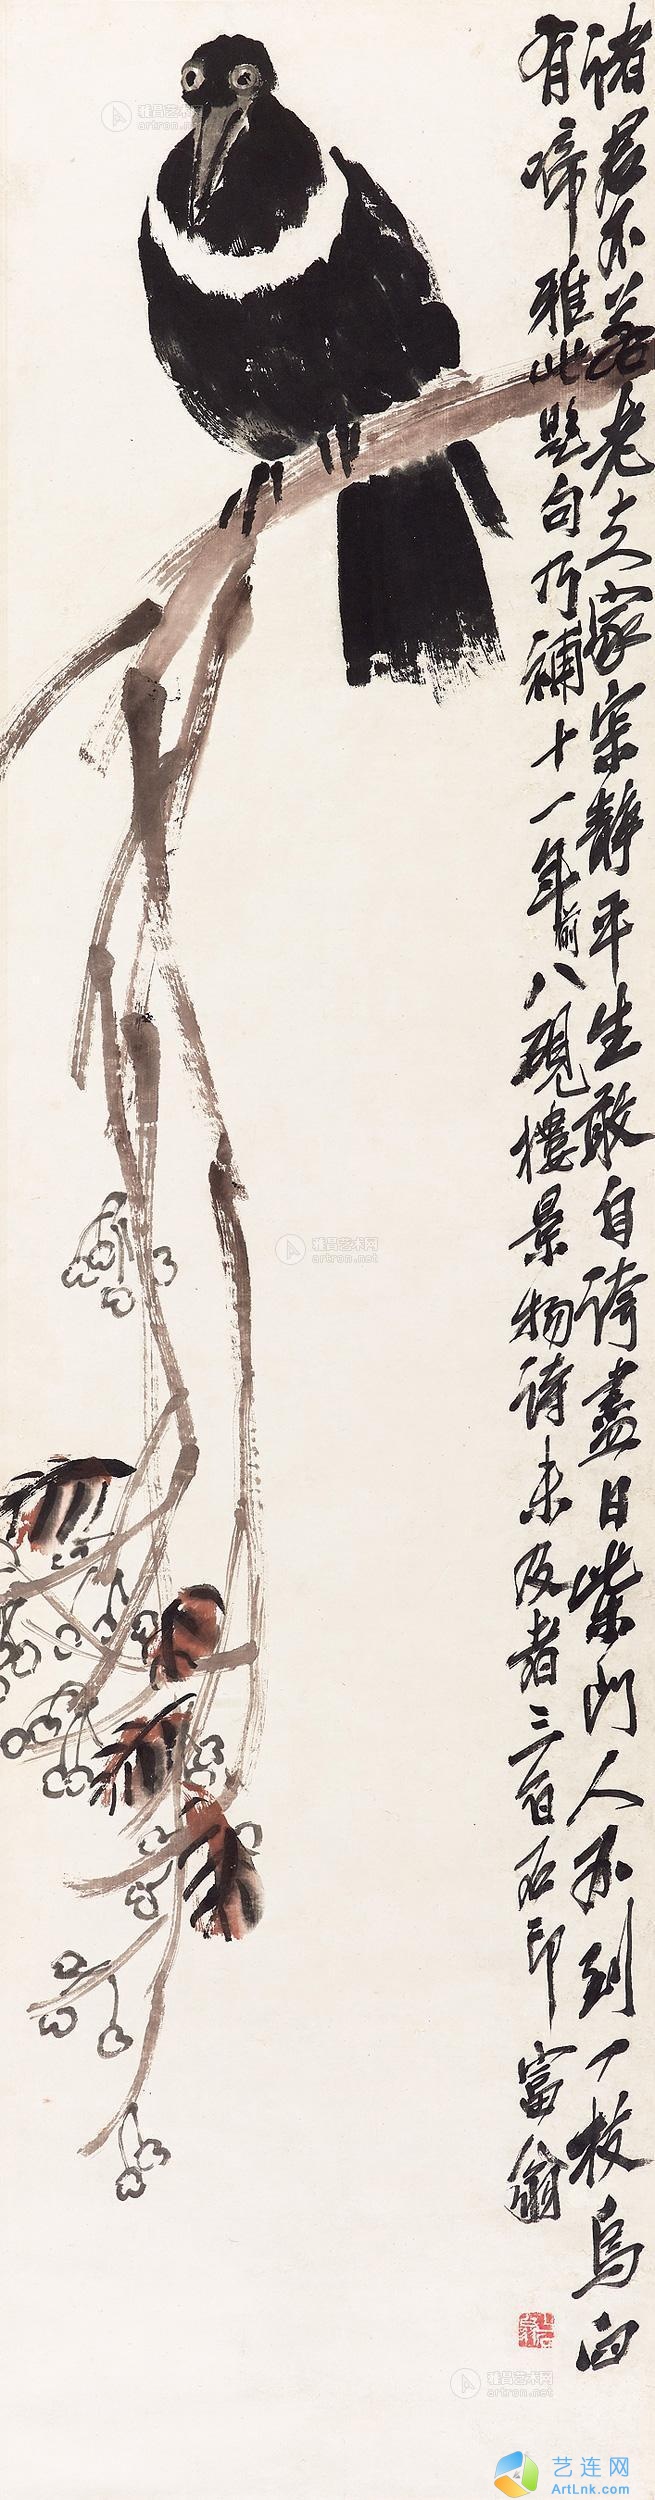 諸君不若老夫家寂靜平生敢自誇盡日柴門人不到一枝烏臼
有啼雅此題句乃補十一年前八硯樓景物詩未及者三百石印富翁
雅昌艺术网
artron.net
雅昌艺术网
artron.net
雅昌艺术网
artron.net
艺连网
ArtLnk.com